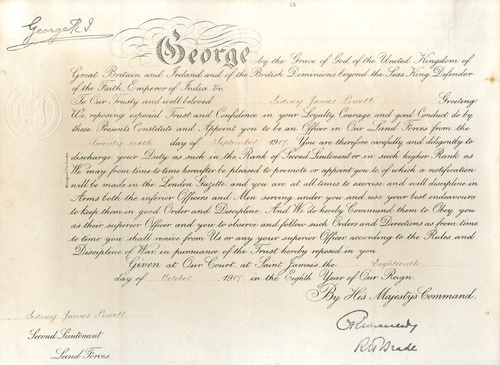 George R.I.
George by the Grace of God of the United Kingdom of
Great Britain and Ireland, and of the British Dominions beyond the Seas, King, Defender
of the Faith, Emperor of India &c.
To Our Trusty and well beloved Sidney James Powell Greeting:
We reposing especial Trust and Confidence in your Loyalty, Courage, and good Conduct, do by
these Presents Constitute and Appoint you to be an Officer in Our Land Forces from the
Twenty sixth day of September 1917. You are therefore carefully and diligently to
discharge your Duty as such in the Rank of Second Lieutenant or in such higher Rank as
We may from time to time hereafter be pleased to promote or appoint you to, of which a notification
will be made in the London Gazette, and you are at all times to exercise and well discipline in
Arms both the inferior Officers and Men serving under you and use your best endeavours
to keep them in good Order and Discipline. And We do hereby Command them to Obey you
as their superior Officer, and you to observe and follow such Orders and Directions as from time
to time you shall receive from Us, or any your superior Officer, according to the Rules and
Discipline of War, in pursuance of the Trust hereby reposed in you.
Given at Our Court, at Saint James's, the Eighteenth
day of October 1917 in the Eighth Year of Our Reign.
By His Majesty's Command.
Sidney James Powell
Second Lieutenant
Land Forces.